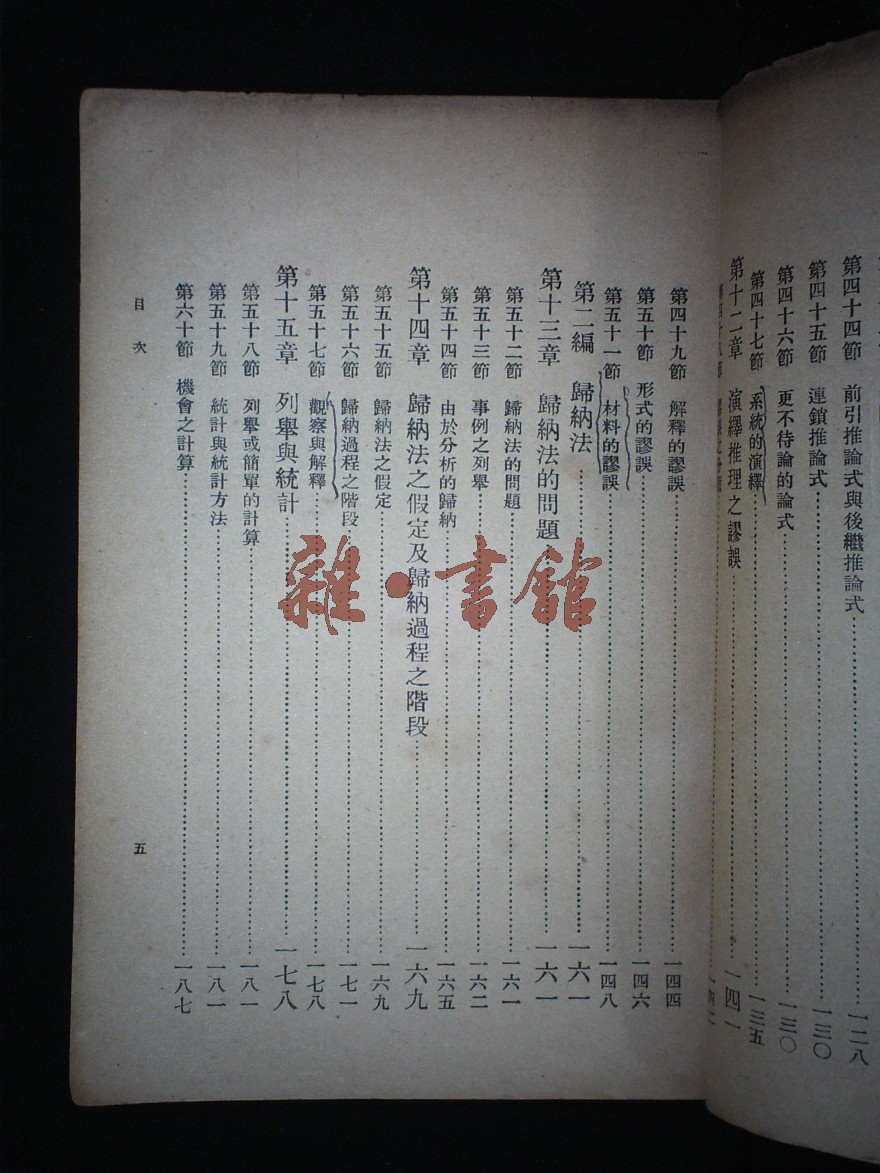 第四十四節 前引推論式與後繼推論式 一二八
第四十五節 連鎖推論式 一三〇
第四十六節 更不待論的論式 一三〇
第四十七節 系統的演繹 一三五
第十二章 演繹推理之謬誤 一四一
第四十八節
第四十九節 解釋的謬誤 一四四
第五十節 形式的謬誤 一四六
第五十一節 材料的謬誤 一四八
第二編 歸納法 一六一
第十三章 歸納法的問題 一六一
第五十二節 歸納法的問題 一六一
第五十三節 事例之列舉 一六二
第五十四節 由於分析的歸納 一六五
第十四章 歸納法之假定及歸納過程之階段 一六九
第五十五節 歸納法之假定 一六九
第五十六節 歸納過程之階段 一七一
第五十七節 觀察與解釋 一七八
第十五章 列舉與統計 一七八
第五十八節 列舉或簡單的計算 一八一
第五十九節 統計與統計方法 一八一
第六十節 機會之計算 一八七
目次
五
雜·書館